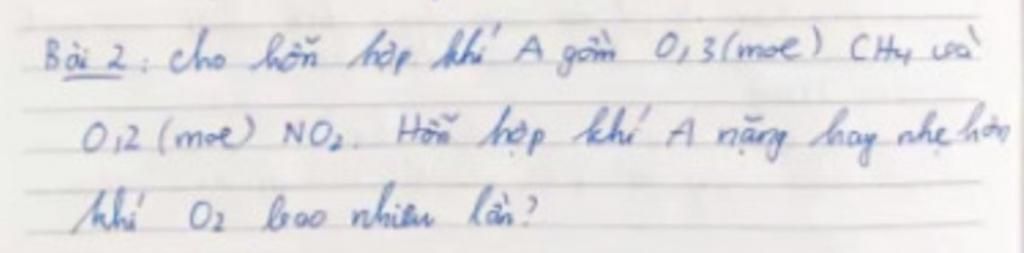 Bài 2: Cho hỗn hợp khí A gồm 0,3 (mol) CH₄ và
0,2 (mol) NO₂. Hỗn hợp khí A nặng hay nhẹ hơn
khí O₂ bao nhiêu lần?